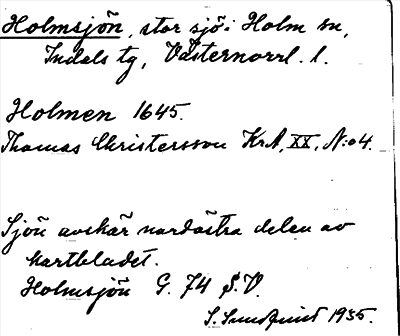 Holmsjön, stor sjö i Holm sn,
Indals tg, Västernorrl. l.
Holmen 1645.
Thomas Christersson KrA, XX, N:o 4.
Sjön avskär nordöstra delen av
kartbladet.
Holmsjön G. 74 S.V.
S. Sundquist 1935.